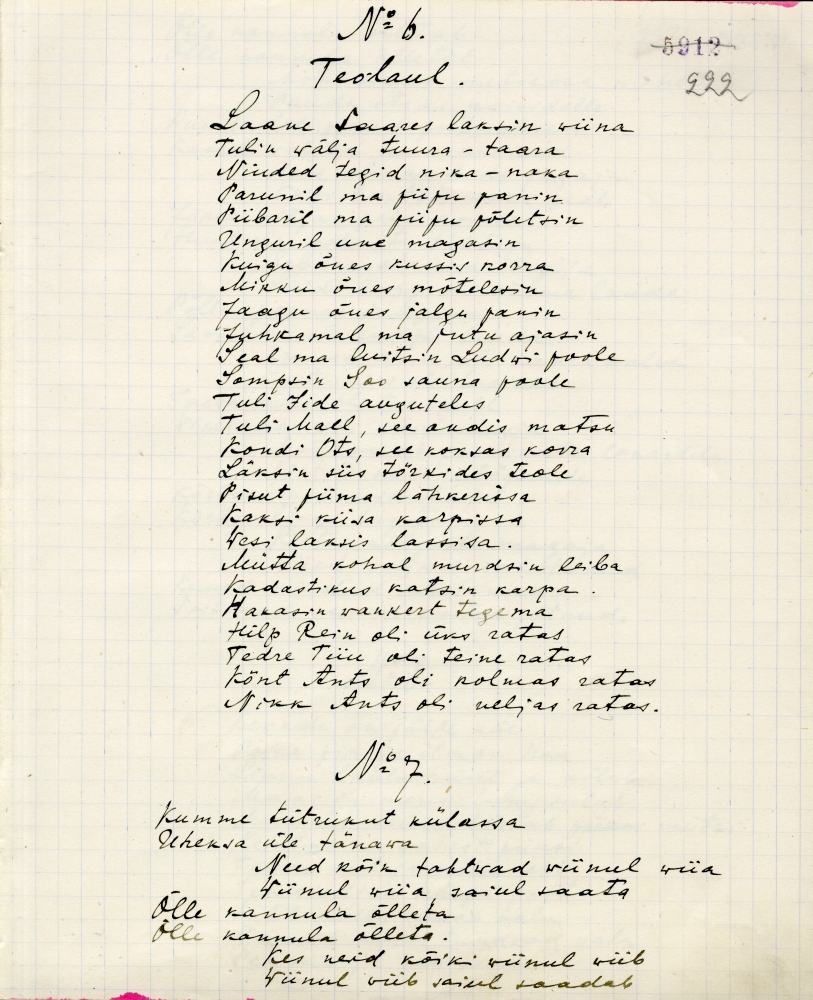 № 6.
5912
222
Teolaul.
Laane Saares laksin wiina
Tulin wälja tuura-taara
Niuded tegid nika-naka
Parunil ma piipu panin
Piibaril ma piipu põletsin
Unguril une magasin
Kuigu õues kussin korra
Mikku õues mõtelesin
Jaagu õues jalgu panin
Juhkamal ma jutu ajasin
Seal ma luitsin Ludwi poole
Sompsin Soo sauna poole
Tuli Iide auguteles
Tuli Mall, see andis matsu
Kondi Ots, see koksas korra
Läksin siis törkides teole
Pisut piima lähkerissa
Kaksi kiisa karpissa
Wesi laksis lassisa.
Mütta kohal murdsin leiba
Kadastikus katsin karpa.
Hakasin wankert tegema
Hilp Rein oli üks ratas
Tedre Tiiu oli teine ratas
Könt Ants oli kolmas ratas
Nikk Ants oli neljas ratas.
№ 7.
Kumme tütrukut külassa
Üheksa üle tänawa
Need kõik tahtwad wiinul wiia
Wiinul wiia saiul saata
Õlle kannula õlleta
Õlle kannula õlleta.
Kes neid kõiki wiinul wiib
Wiinul wiib saiul saadab